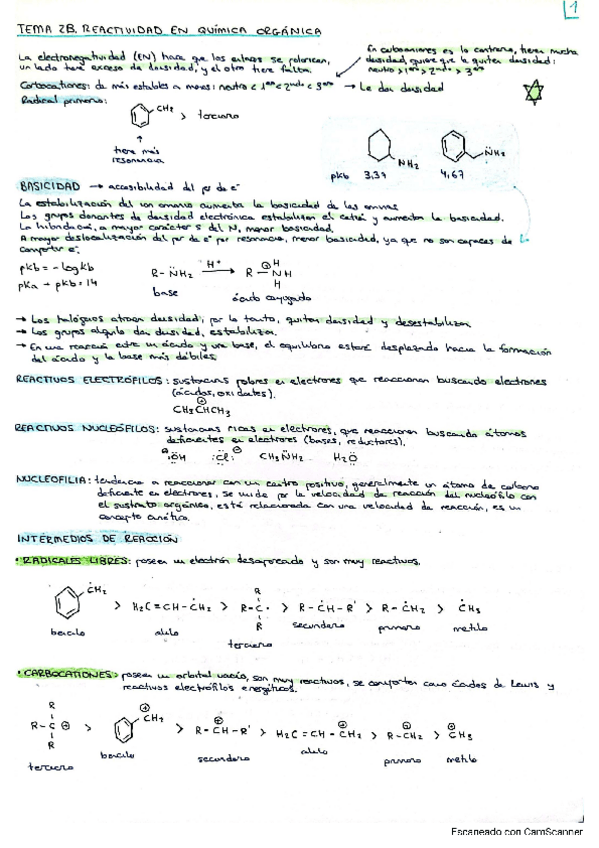 1
TEMA 2B. REACTIVIDAD EN QUÍMICA ORGÁNICA
La electronegatividad (EN) hace que los enlaces se polaricen,
un lado tiene exceso de densidad, y el otro tiene falta.
En carbaniones es lo contrario, tienen mucha
densidad, quiere que le quiten densidad:
metilo > 1ario > 2ario > 3ario
Carbocationes: de más estables a menos: metilo < 1ario < 2ario < 3ario → Le dan densidad
Radical primario:
CH2 > terciario
↑
tiene más
resonancia
NH2 NH2
pkb 3,39 4,67
BASICIDAD → accesibilidad del par de e-
La estabilización del ion amonio aumenta la basicidad de las aminas.
Los grupos donantes de densidad electrónica estabilizan el catión y aumenta la basicidad.
La hibridación, a mayor carácter s del N, menor basicidad.
A mayor deslocalización del par de e- por resonancia, menor basicidad, ya que no son capaces de
compartir e-.
pkb = -log kb
pka + pkb = 14
R-NH2 H+ → R-NH
H
H
base ácido conjugado
→ Los halógenos atraen densidad, por lo tanto, quitan densidad y desestabilizan.
→ Los grupos alquilo dan densidad, estabilizan.
→ En una reacción entre un ácido y una base, el equilibrio estará desplazado hacia la formación
del ácido y la base más débiles.
REACTIVOS ELECTRÓFILOS: sustancias pobres en electrones que reaccionan buscando electrones
(ácidos, oxidantes).
CH3CHCH3
REACTIVOS NUCLEÓFILOS: sustancias ricas en electrones, que reaccionan buscando átomos
deficientes en electrones (bases, reductores).
:ÖH :Cl: CH3NH2 H2O
NUCLEOFILIA: tendencia a reaccionar con un centro positivo, generalmente un átomo de carbono
deficiente en electrones, se mide por la velocidad de reacción del nucleófilo con
el sustrato orgánico, está relacionada con una velocidad de reacción, es un
concepto cinético.
INTERMEDIOS DE REACCIÓN
• RADICALES LIBRES: poseen un electrón desapareado y son muy reactivos.
R
CH2 > H2C=CH-CH2 > R-C· > R-CH-R' > R-CH2 > CH3
R
bencilo alilo terciario secundario primario metilo
• CARBOCATIONES: poseen un orbital vacío, son muy reactivos, se comportan como ácidos de Lewis y
reactivos electrófilos energéticos.
R
R-C ⊕ > CH2 > R-CH-R' > H2C=CH-CH2 > R-CH2 > CH3
R
terciario bencilo secundario alilo primario metilo
Escaneado con CamScanner